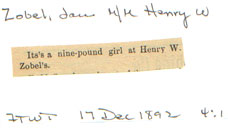 Zobel, dau M/M Henry W
Its's a nine-pound girl at Henry W.
Zobel's.
FTWT 17 Dec 1892 4:1